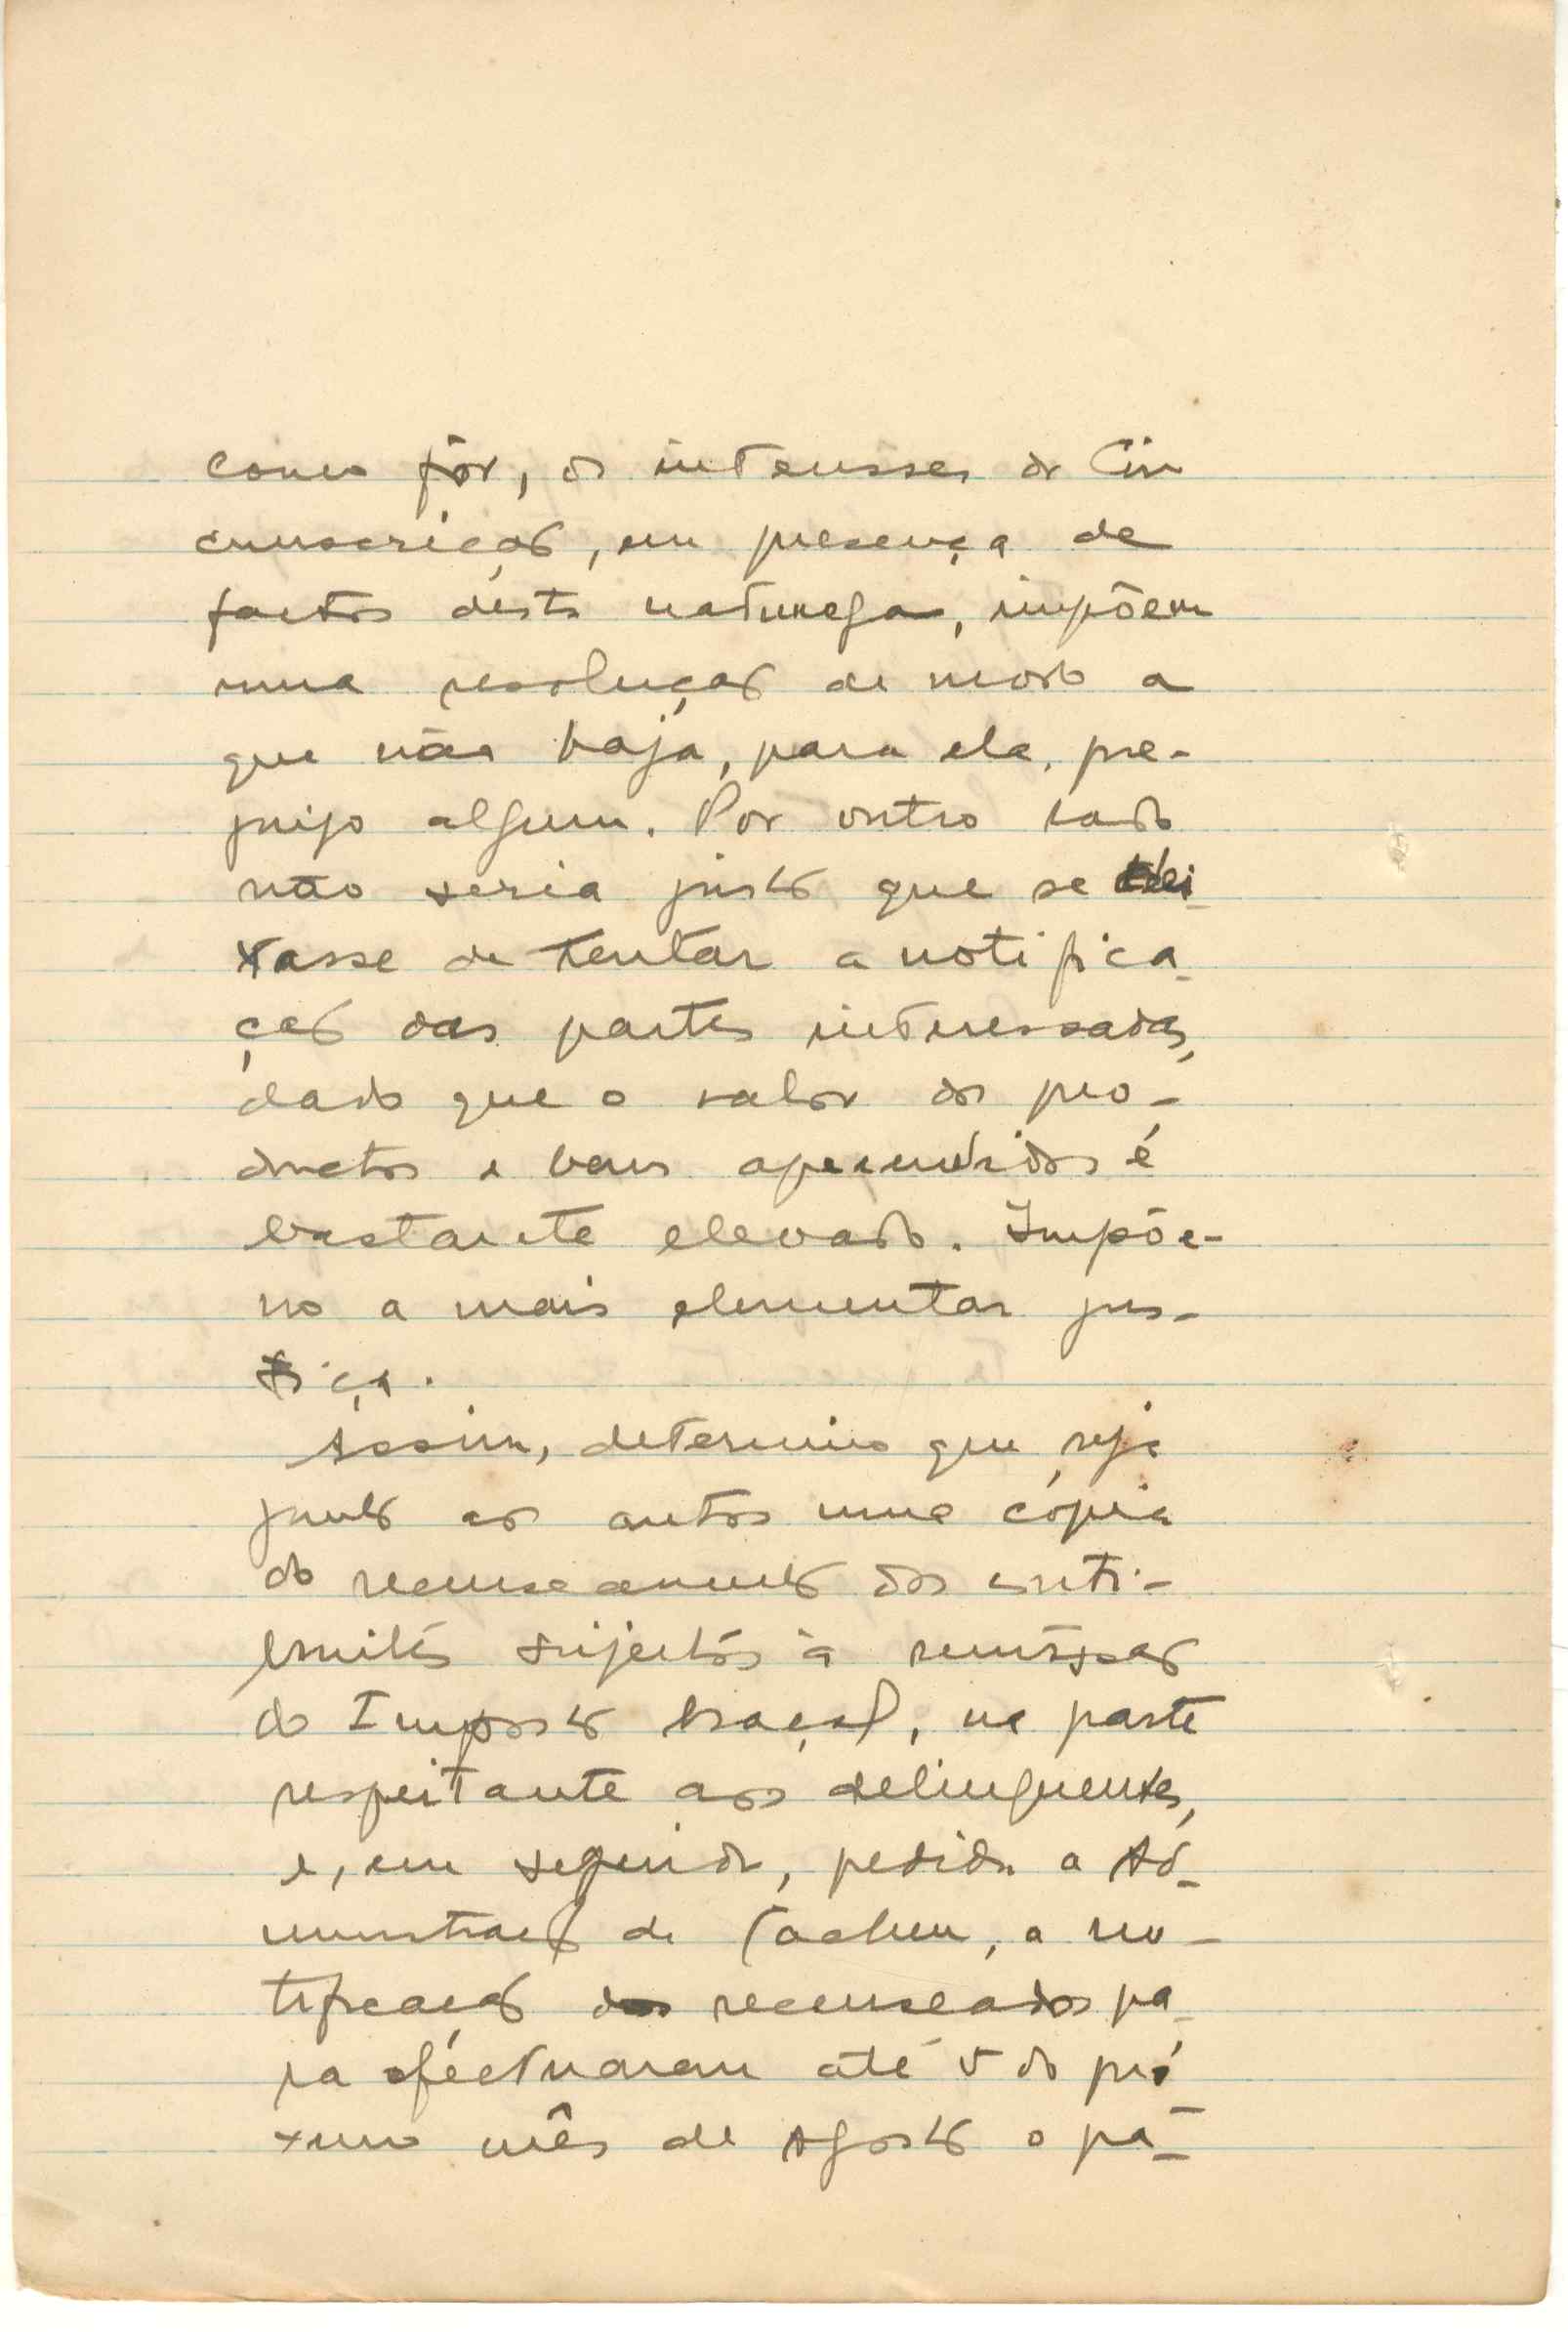 como fôr, os interêsses da Cir
cunscrição, em presença de
factos desta natureza, impõem
uma resolução de modo a
que não haja, para ela, pre-
juizo algum. Por outro lado
não seria justo que se dei-
xasse de tentar a notifica-
ção das partes interessadas,
dado que o valor dos pro-
ductos e bens apreendidos é
bastante elevado. Impõe-
no a mais elementar jus-
tiça.
Assim, determino que seja
junto aos autos uma cópia
do recenseamento dos contri-
buintes sujeitos à remissão
do Imposto braçal, na parte
respeitante aos delinquentes,
e, em seguida, pedida a Ad-
ministração de Cacheu, a no-
tificação dos recenseados pa-
ra efectuarem até 5 do pró
ximo mês de Agosto o pa-